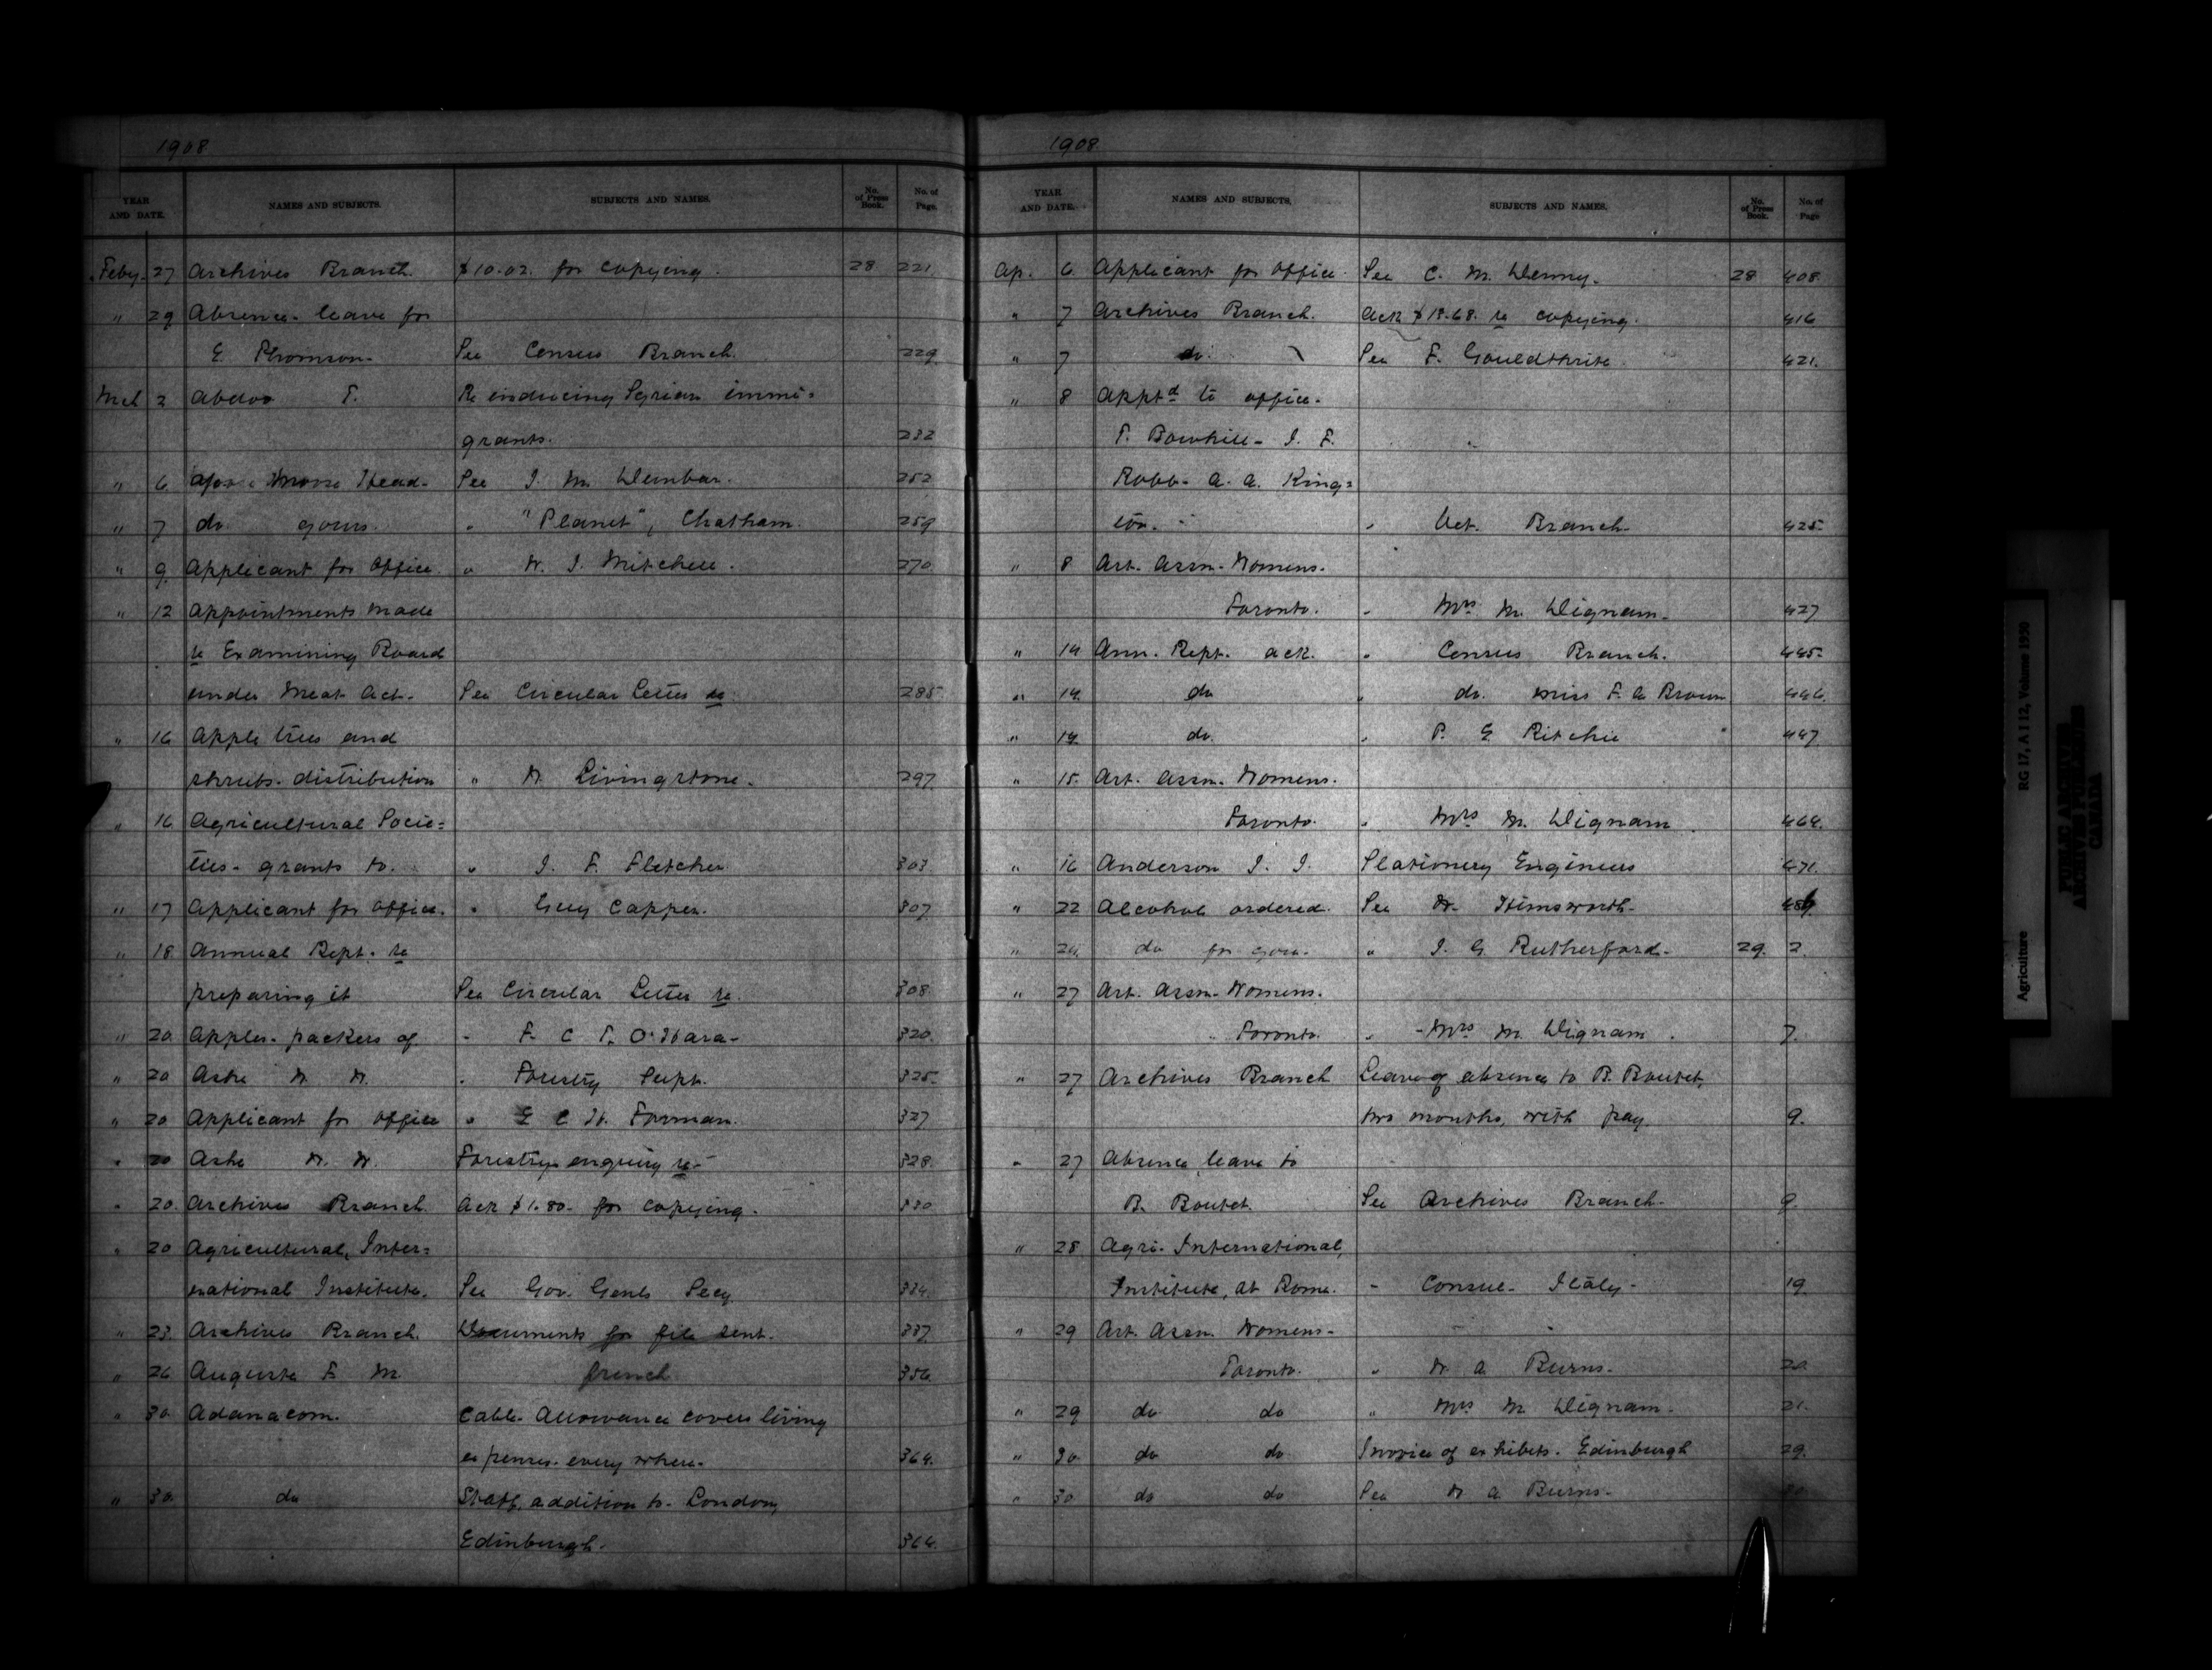 1908.
YEAR AND DATE. NAMES AND SUBJECTS. SUBJECTS AND NAMES. No. of Press Book. No. of Page.
Feby. 27 Archives Branch. $10.02. for copying. 28 221.
" 29 Absence-leave for
E Thomson- See Census Branch. 229
Mch 2 Abdoo T. Re inducing Syrian immi=
grants. 232
" 6 Moose Head- See J. M. Dembar. 252
" 7 do yours. " "Planet", Chatham. 259
" 9. Applicant for office. " W. J. Mitchell. 270
" 12 Appointments made
re Examining Board
under Meat Act- See Circular Letter re 285
" 16 Apple trees and
shrubs-distribution " W. Livingstone. 297
" 16 Agricultural Socie=
ties- grants to. " J. F. Fletcher 303
" 17 Applicant for office. " Guy Cappen. 307
" 18 Annual Rept. re
preparing it See Circular Letter re. 308
" 20 Apples-packers of " F. C T. O'Hara- 320
" 20 Ashe W. W. " Forestry Supt. 325
" 20 Applicant for office " E C H. Forman. 327
" 20 Ashe W. W. Forestry enquiry re- 328
" 20. Archives Branch. Ack $1.80. for copying. 330
" 20 Agricultural, Inter=
national Institute. See Gov. Genls Secy 334.
" 23. Archives Branch. Documents for file sent. 337
" 26 Auguste F M. french 356
" 30. Adanacom. Cable-Allowance covers living
expenses-everywhere- 364.
" 30. do Staff, addition to-London,
Edinburgh- 364.
1908.
YEAR AND DATE. NAMES AND SUBJECTS. SUBJECTS AND NAMES. No. of Press Book. No. of Page
Ap. 6. Applicant for office. See C. M. Denny. 28 408.
" 7 Archives Branch. Ack $18.68. re copying. 416
" 7 do. See F. Gouldthrite 421.
" 8 Apptd to office.
T. Bowhill- J. F.
Robb- A. A. King=
ton. " Vet. Branch- 425.
" 8 Art. Assn-Womens.
Toronto. " Mrs M. Dignam- 427
" 14 Ann. Rept. ack. " Census Branch. 445.
" 14. do " do. Miss F. A Brown 446.
" 14. do. " P. E Ritchie 447
" 15. Art. Assn. Womens.
Toronto. " Mrs M. Dignam 464.
" 16 Anderson J. J. Stationery Engineers 471.
" 22 Alcohol ordered. See W. Himsworth-
" 24. do for you. " J. G Rutherford- 29. 2.
" 27 Art. Assn-Womens.
Toronto. " Mrs M. Dignam. 7.
" 27 Archives Branch Leave of absence to B. Boutet,
two months, with pay. 9.
" 27 Absence leave to
B. Boutet. See Archives Branch- 9.
" 28 Agri- International,
Institute, at Rome. " Consul- Italy- 19.
" 29 Art. Assn. Womens-
Toronto. " W. A. Burns. 20
" 29 do do " Mrs M. Dignam- 21.
" 30 do do Invoice of exhibits- Edinburgh 29.
" 30 do do See W A. Burns- 30
Agriculture RG 17, A I 12, Volume 1930
PUBLIC ARCHIVES
ARCHIVES PUBLIQUES
CANADA